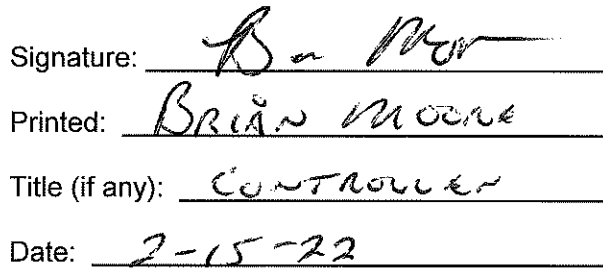 Signature: B Moor
Printed: BRIAN MOORE
Title (if any): CONTROLLER
Date: 2-15-22